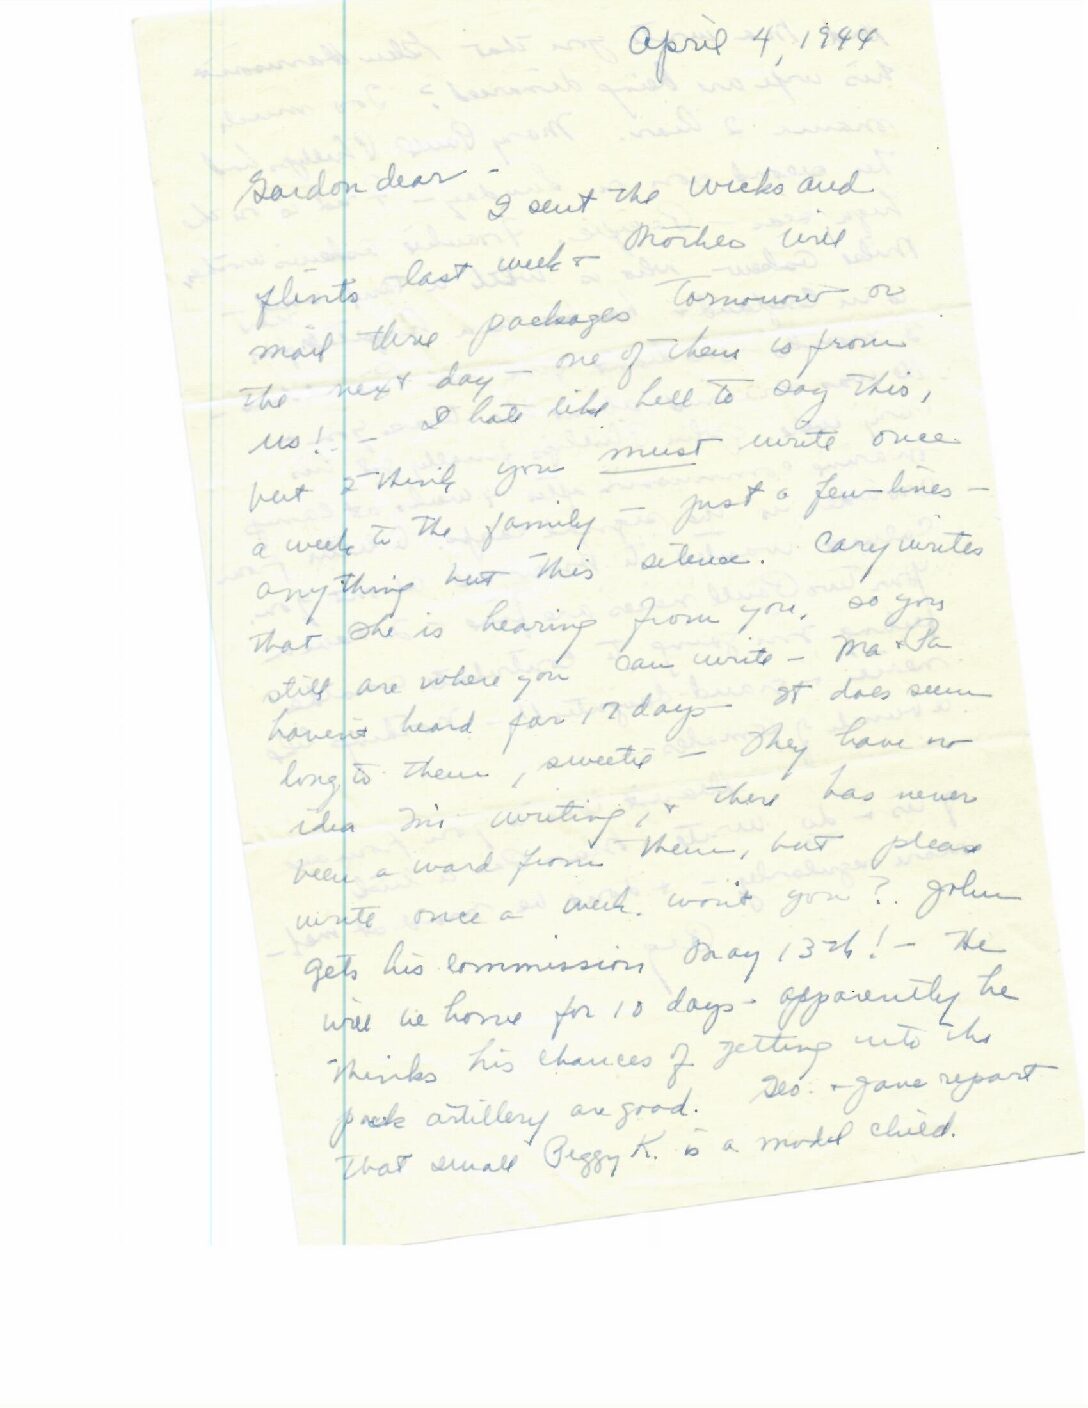 April 4, 1944
Gordon dear -
I sent the wicks and
flints last week & Mother will
mail three packages tomorrow or
the next day - one of them is from
us! - I hate like hell to say this,
but I think you must write once
a week to the family - just a few lines -
anything but this silence. Cary writes
that she is hearing from you, so you
still are where you can write - Ma & Pa
haven't heard for 17 days - It does seem
long to them, sweetie - They have no
idea I'm writing, & there has never
been a word from them, but please
write once a week. won't you? John
gets his commission May 13th! - He
will be home for 10 days - apparently he
thinks his chances of getting into the
pack artillery are good. Geo. & Jane report
that small Peggy K. is a model child.